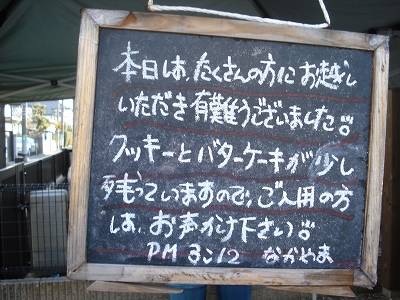 本日は、たくさんの方にお越し
いただき有難うございました。
クッキーとバターケーキが少し
残っていますので、ご入用の方
は、お声かけ下さい。
PM 3:12 なかやま